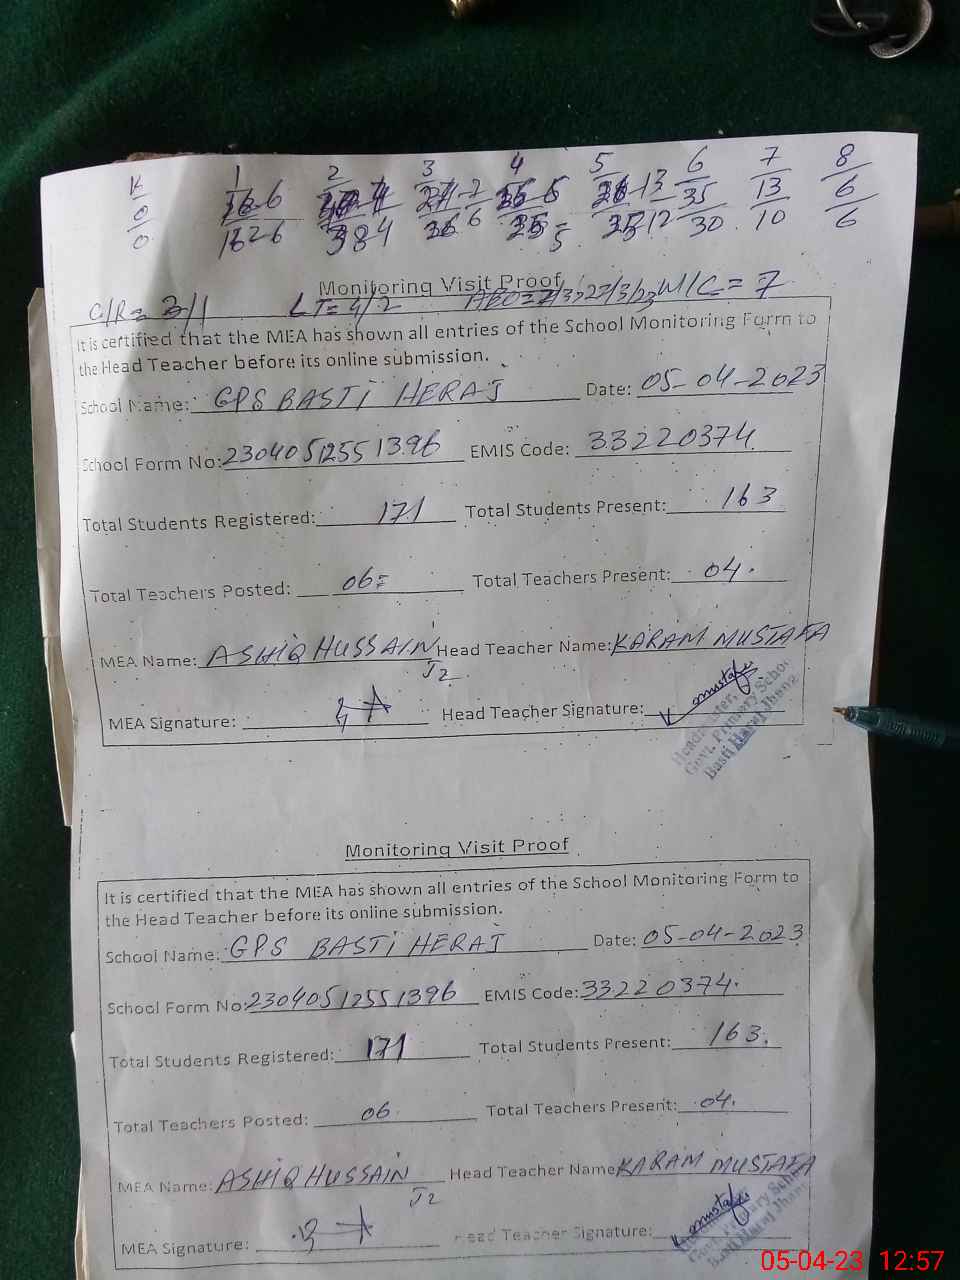 K 1 2 3 4 5 6 7 8
0 35 13 6
0 30 10 6
Monitoring Visit Proof
C/R= /1 LT= 4/2 W/C= 7
It is certified that the MEA has shown all entries of the School Monitoring Form to
the Head Teacher before its online submission.
School Name: GPS BASTI HERAJ Date: 05-04-2023
School Form No: 23040512551396 EMIS Code: 33220374
Total Students Registered: 171 Total Students Present: 163
Total Teachers Posted: 06 Total Teachers Present: 04.
MEA Name: ASHIQ HUSSAIN Head Teacher Name: KARAM MUSTAFA
J2
MEA Signature: Head Teacher Signature: K mustafa
Headmaster,
Govt. Primary School
Basti Haraj Jhang
Monitoring Visit Proof
It is certified that the MEA has shown all entries of the School Monitoring Form to
the Head Teacher before its online submission.
School Name: GPS BASTI HERAJ Date: 05-04-2023
School Form No: 23040512551396 EMIS Code: 33220374.
Total Students Registered: 171 Total Students Present: 163.
Total Teachers Posted: 06 Total Teachers Present: 04.
MEA Name: ASHIQ HUSSAIN Head Teacher Name KARAM MUSTAFA
J2
MEA Signature: Head Teacher Signature: K mustafa
Basti Haraj Jhang
05-04-23 12:57